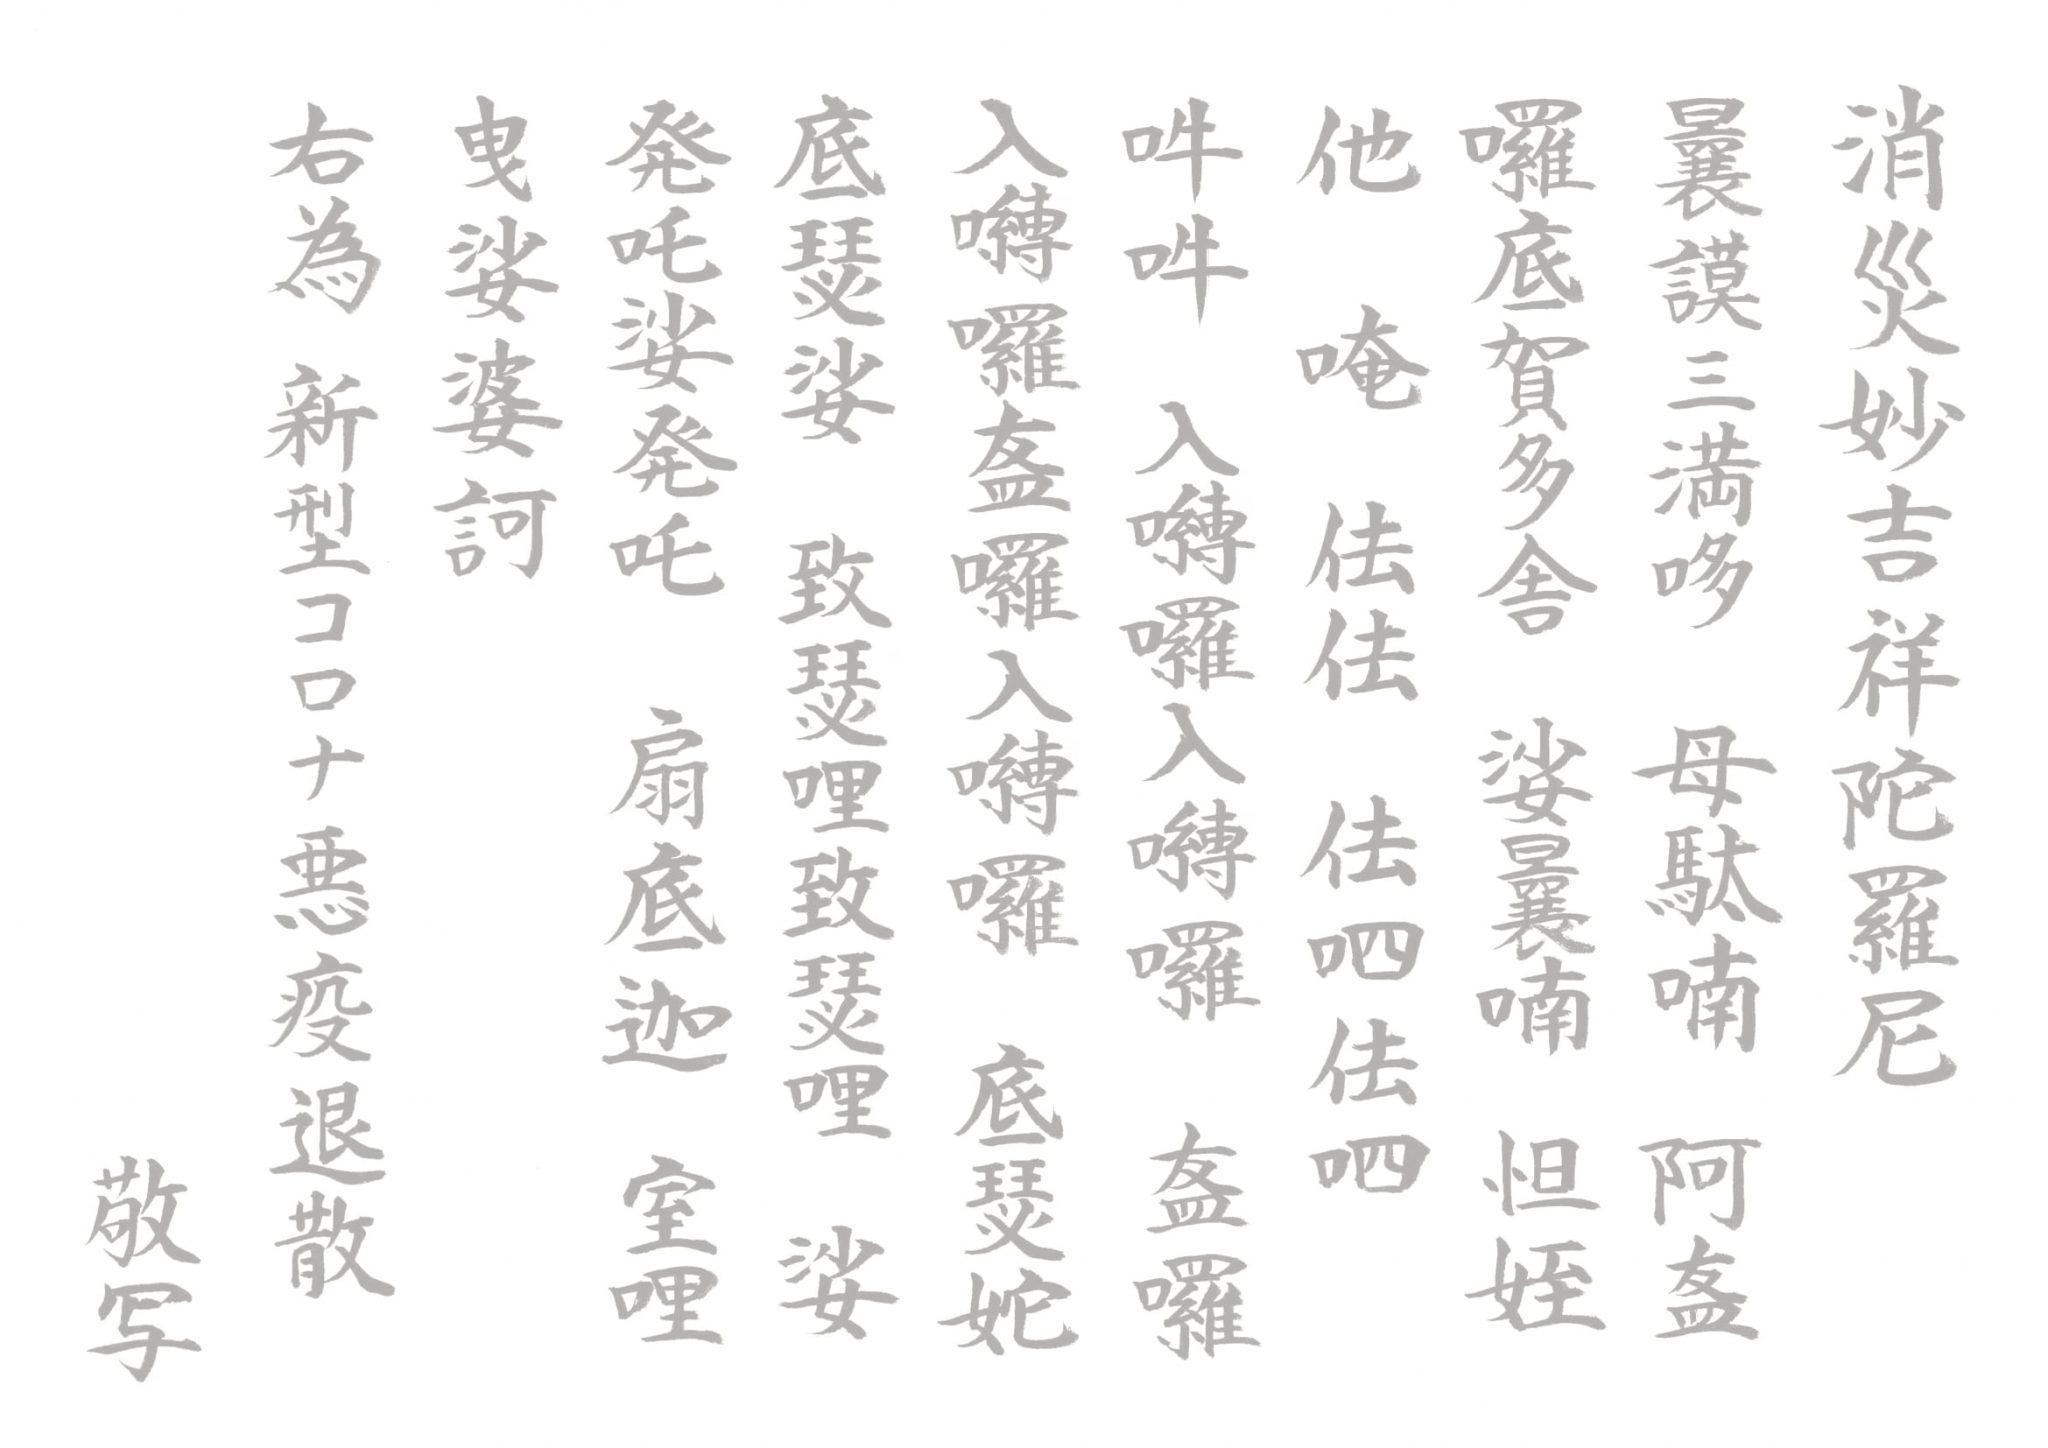 消災妙吉祥陀羅尼
曩謨三満哆 母駄喃 阿盋
囉底賀多舎 娑曩喃 怛姪
他 唵 佉佉 佉呬佉呬
吽吽 入嚩囉入嚩囉 盋囉
入嚩囉盋囉入嚩囉 底瑟姹
底瑟娑 致瑟哩致瑟哩 娑
発吒娑発吒 扇底迦 室哩
曳娑婆訶
右為 新型コロナ悪疫退散
敬写